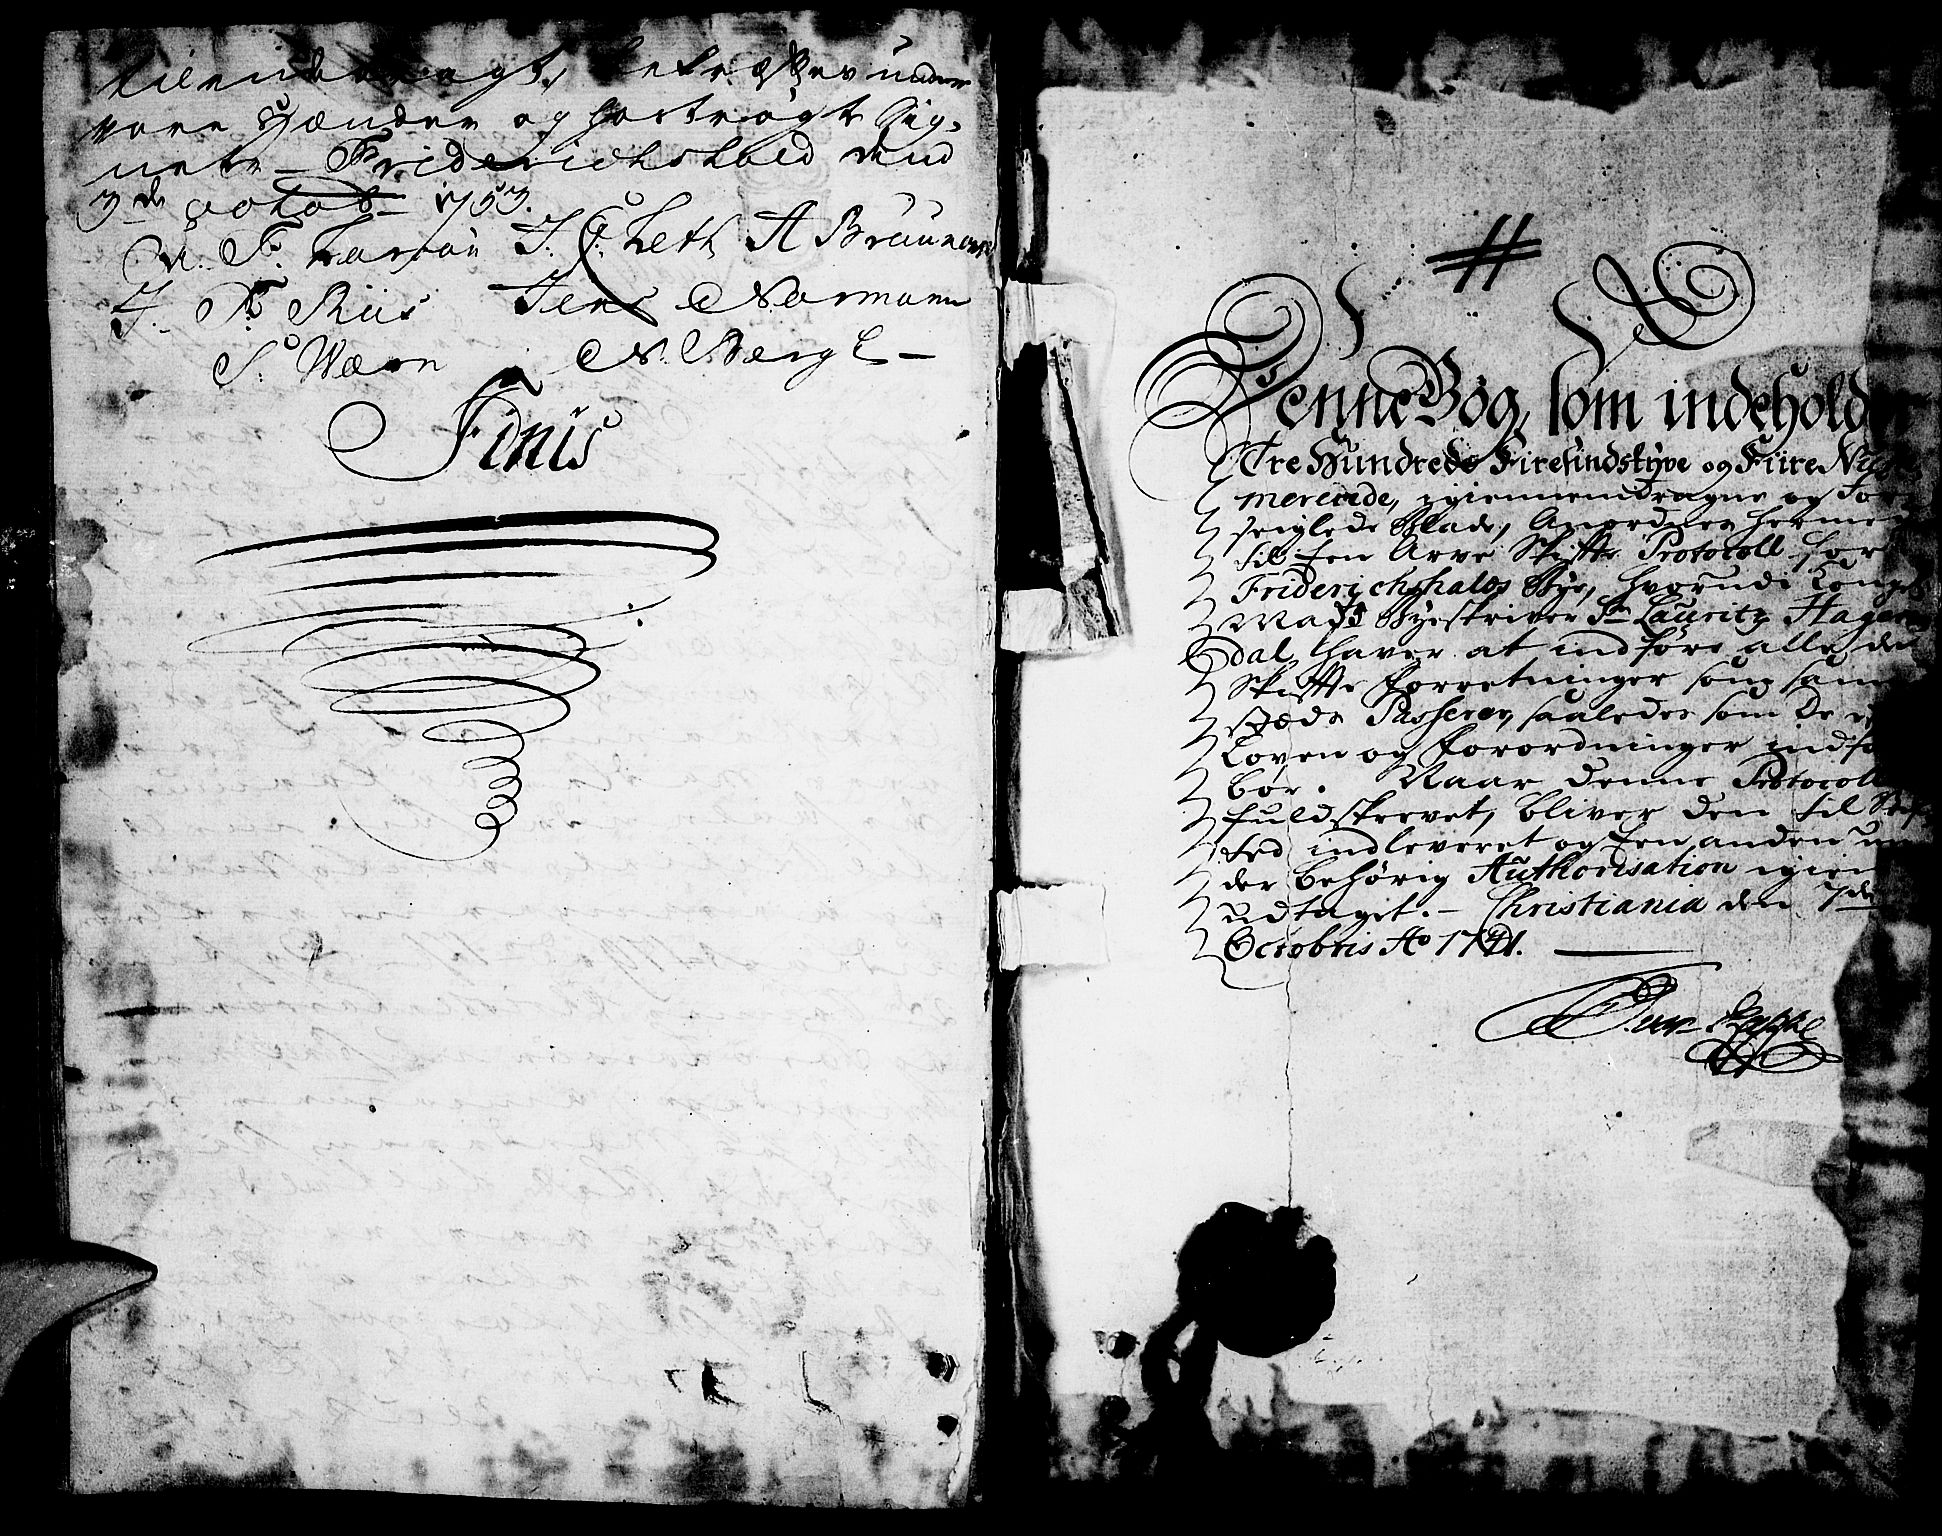 tilendebragt, bekræfter under
vore Hænder og hostrøgte Sig-
neter Friderichshald dend
3de octob 1753.
N. F. Larsøn J. C. Leth A Bruun
J. P. Riis Jens Normann
S. Wærn N. Berg
Finis
Denne Bog, som indeholder
Tre Hundrede Firesindstyve og Fiire Nu
mererede, igiennemdragne og For
seiglede Blade, Anordnes hermed
til Een Arve Skiffte Protocoll for
Friderichshalds Bye, hvorudi Kongl
Mayts Byeskriver Sr Lauritz Hagen
dal haver at indføre alle de
Skiffte Forretninger som sam
stæds Passerer, saaledes som De
Loven og Forordninger indfø
bør. Naar denne Protocoll
fuldskrevet, bliver den til Stif
ted indleveret og Een anden un
der behørig Authorisation igien
udtaget. Christiania den 7de
Octobris Ao 1741.